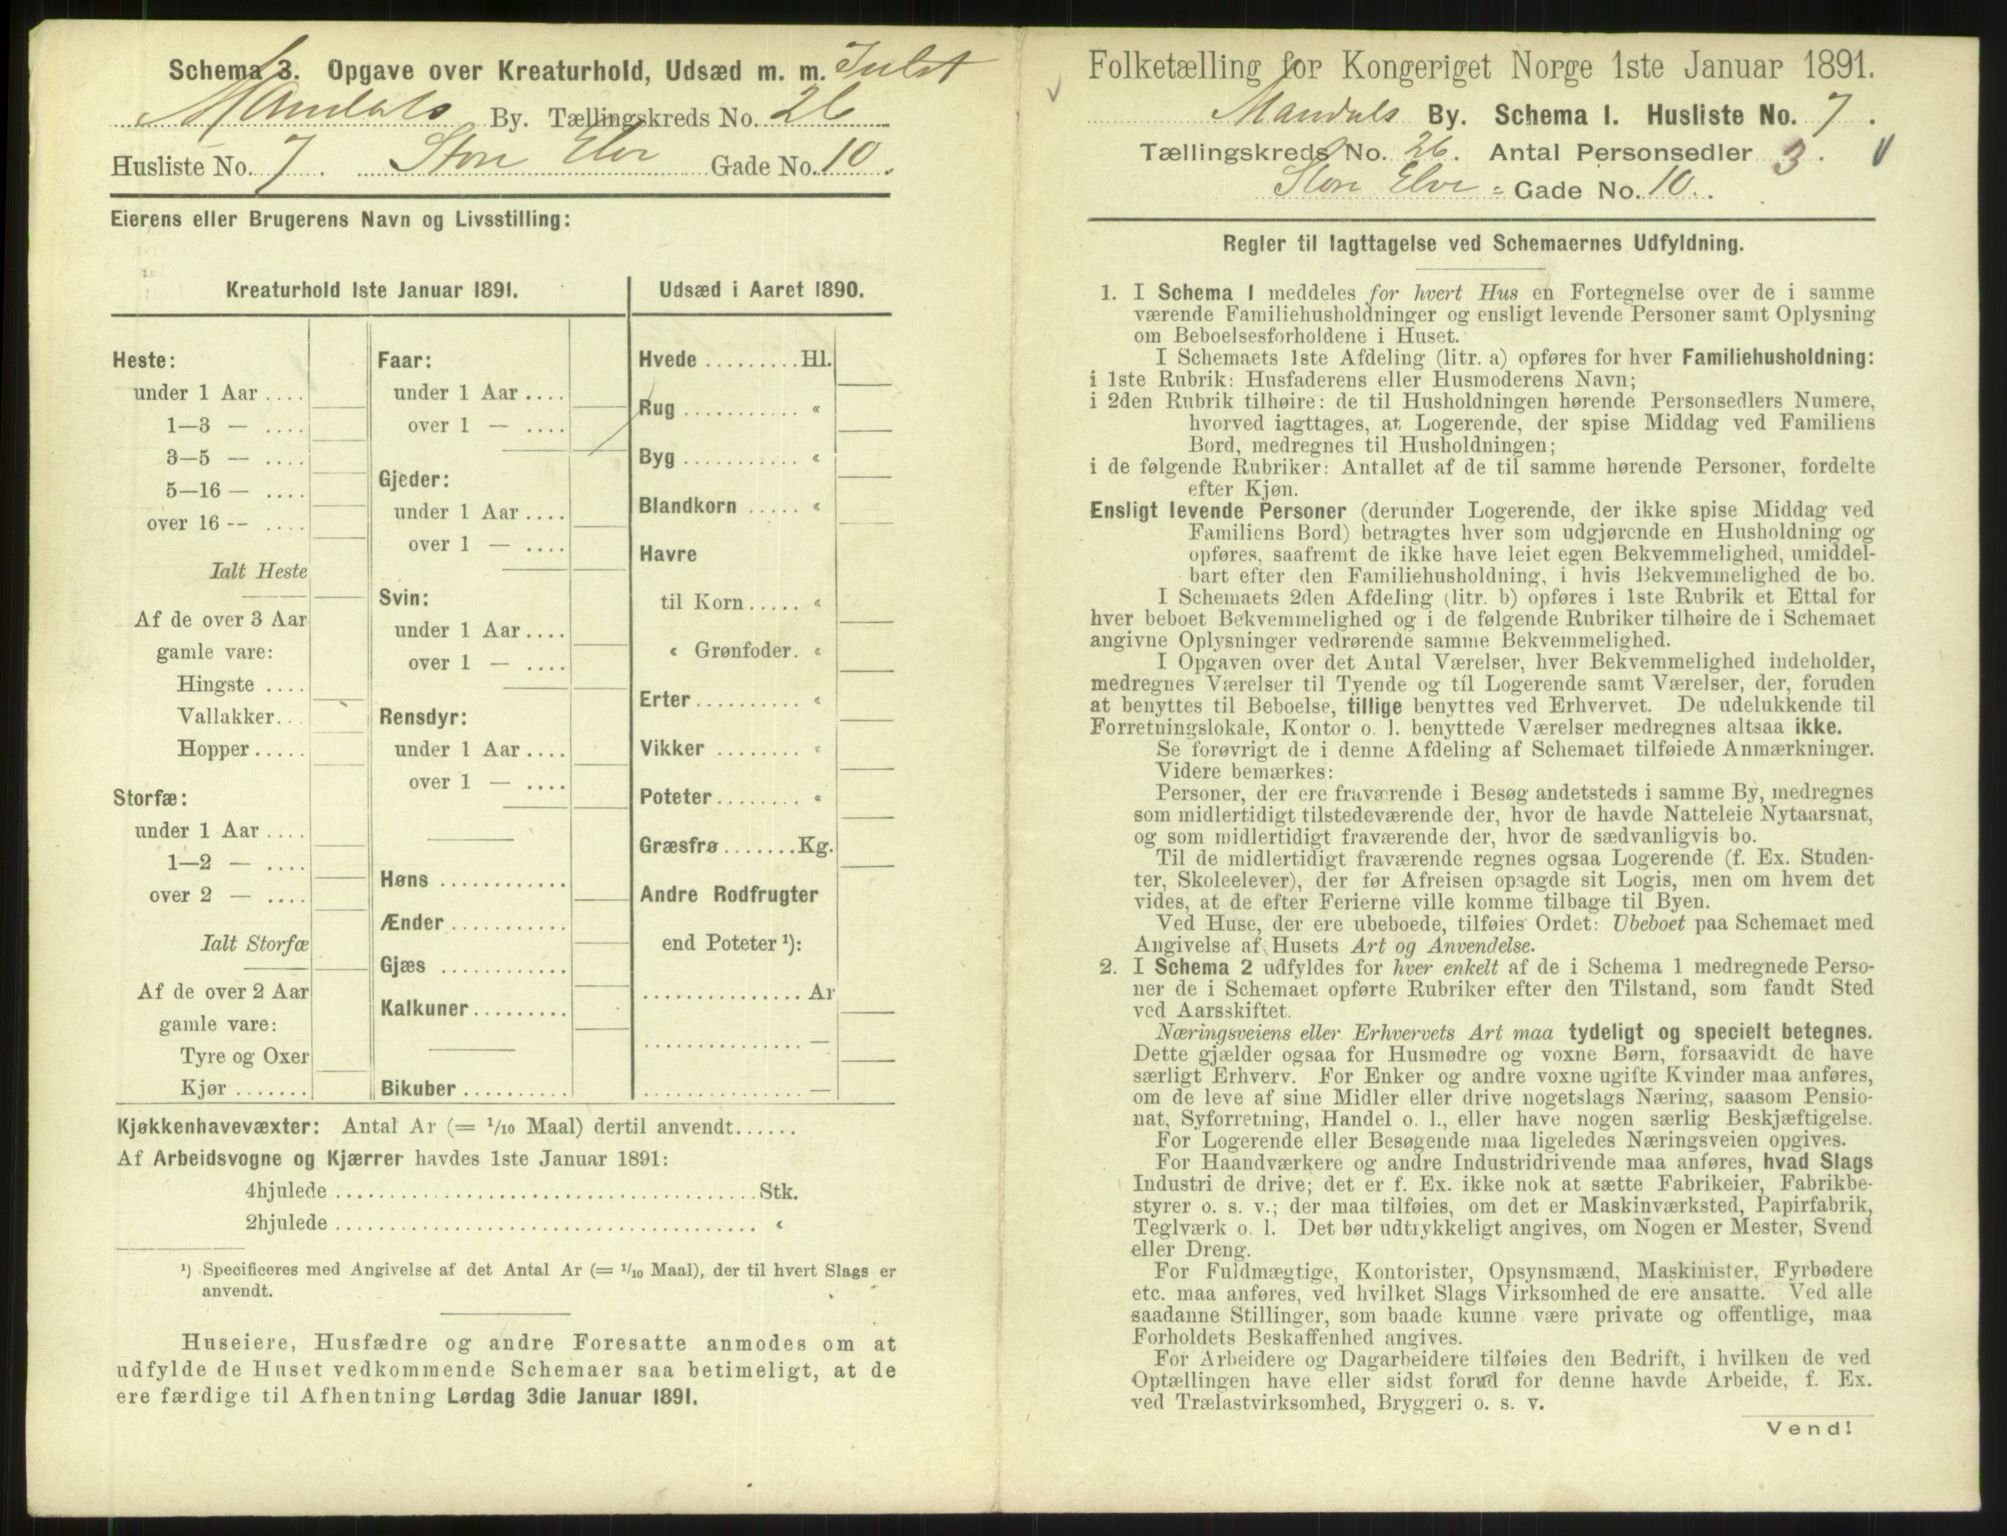 Schema 3. Opgave over Kreaturhold, Udsæd m. m.
Mandals By. Tællingskreds No. 26
Husliste No. 7. Store Elve Gade No. 10.
Eierens eller Brugerens Navn og Livsstilling:
Kreaturhold 1ste Januar 1891.
Heste:
under 1 Aar ....
1—3 — ....
3—5 — ....
5—16 — ....
over 16 -- ....
Ialt Heste
Af de over 3 Aar
gamle vare:
Hingste ....
Vallakker...
Hopper.....
Storfæ:
under 1 Aar ....
1—2 — ....
over 2 — ....
Ialt Storfæ
Af de over 2 Aar
gamle vare:
Tyre og Oxer
Kjør.......
Faar:
under 1 Aar ....
over 1 — ....
Gjeder:
under 1 Aar ....
over 1 — ....
Svin:
under 1 Aar ....
over 1 — ....
Rensdyr:
under 1 Aar ....
over 1 — ....
Høns ............
Ænder ...........
Gjæs ............
Kalkuner.........
Bikuber ..........
Udsæd i Aaret 1890.
Hvede .........Hl.
Rug ........... «
Byg ........... «
Blandkorn ..... «
Havre
til Korn ..... «
« Grønfoder. «
Erter ......... «
Vikker ........ «
Poteter ........ «
Græsfrø .......Kg.
Andre Rodfrugter
end Poteter ¹):
............... Ar
............... —
............... —
Kjøkkenhavevæxter: Antal Ar (= 1/10 Maal) dertil anvendt......
Af Arbeidsvogne og Kjærrer havdes 1ste Januar 1891:
4hjulede ....................................Stk.
2hjulede .................................... «
¹) Specificeres med Angivelse af det Antal Ar (= 1/10 Maal), der til hvert Slags er
anvendt.
Huseiere, Husfædre og andre Foresatte anmodes om at
udfylde de Huset vedkommende Schemaer saa betimeligt, at de
ere færdige til Afhentning Lørdag 3die Januar 1891.
Folketælling for Kongeriget Norge 1ste Januar 1891.
Mandals By. Schema I. Husliste No. 7.
Tællingskreds No. 26. Antal Personsedler 3.
Store Elve = Gade No. 10.
Regler til Iagttagelse ved Schemaernes Udfyldning.
1. I Schema 1 meddeles for hvert Hus en Fortegnelse over de i samme
værende Familiehusholdninger og ensligt levende Personer samt Oplysning
om Beboelsesforholdene i Huset.
I Schemaets 1ste Afdeling (litr. a) opføres for hver Familiehusholdning:
i 1ste Rubrik: Husfaderens eller Husmoderens Navn;
i 2den Rubrik tilhøire: de til Husholdningen hørende Personsedlers Numere,
hvorved iagttages, at Logerende, der spise Middag ved Familiens
Bord, medregnes til Husholdningen;
i de følgende Rubriker: Antallet af de til samme hørende Personer, fordelte
efter Kjøn.
Ensligt levende Personer (derunder Logerende, der ikke spise Middag ved
Familiens Bord) betragtes hver som udgjørende en Husholdning og
opføres, saafremt de ikke have leiet egen Bekvemmelighed, umiddel-
bart efter den Familiehusholdning, i hvis Bekvemmelighed de bo.
I Schemaets 2den Afdeling (litr. b) opføres i 1ste Rubrik et Ettal for
hver beboet Bekvemmelighed og i de følgende Rubriker tilhøire de i Schemaet
angivne Oplysninger vedrørende samme Bekvemmelighed.
I Opgaven over det Antal Værelser, hver Bekvemmelighed indeholder,
medregnes Værelser til Tyende og til Logerende samt Værelser, der, foruden
at benyttes til Beboelse, tillige benyttes ved Erhvervet. De udelukkende til
Forretningslokale, Kontor o. l. benyttede Værelser medregnes altsaa ikke.
Se forøvrigt de i denne Afdeling af Schemaet tilføiede Anmærkninger.
Videre bemærkes:
Personer, der ere fraværende i Besøg andetsteds i samme By, medregnes
som midlertidigt tilstedeværende der, hvor de havde Natteleie Nytaarsnat,
og som midlertidigt fraværende der, hvor de sædvanligvis bo.
Til de midlertidigt fraværende regnes ogsaa Logerende (f. Ex. Studen-
ter, Skoleelever), der før Afreisen opsagde sit Logis, men om hvem det
vides, at de efter Ferierne ville komme tilbage til Byen.
Ved Huse, der ere ubeboede, tilføies Ordet: Ubeboet paa Schemaet med
Angivelse af Husets Art og Anvendelse.
2. I Schema 2 udfyldes for hver enkelt af de i Schema 1 medregnede Perso-
ner de i Schemaet opførte Rubriker efter den Tilstand, som fandt Sted
ved Aarsskiftet.
Næringsveiens eller Erhvervets Art maa tydeligt og specielt betegnes.
Dette gjælder ogsaa for Husmødre og voxne Børn, forsaavidt de have
særligt Erhverv. For Enker og andre voxne ugifte Kvinder maa anføres,
om de leve af sine Midler eller drive nogetslags Næring, saasom Pensio-
nat, Syforretning, Handel o. l., eller have nogen særlig Beskjæftigelse.
For Logerende eller Besøgende maa ligeledes Næringsveien opgives.
For Haandværkere og andre Industridrivende maa anføres, hvad Slags
Industri de drive; det er f. Ex. ikke nok at sætte Fabrikeier, Fabrikbe-
styrer o. s. v.; der maa tilføies, om det er Maskinværksted, Papirfabrik,
Teglværk o. l. Det bør udtrykkeligt angives, om Nogen er Mester, Svend
eller Dreng.
For Fuldmægtige, Kontorister, Opsynsmænd, Maskinister, Fyrbødere
etc. maa anføres, ved hvilket Slags Virksomhed de ere ansatte. Ved alle
saadanne Stillinger, som baade kunne være private og offentlige, maa
Forholdets Beskaffenhed angives.
For Arbeidere og Dagarbeidere tilføies den Bedrift, i hvilken de ved
Optællingen have eller sidst forud for denne havde Arbeide, f. Ex.
ved Trælastvirksomhed, Bryggeri o. s. v.
Vend!